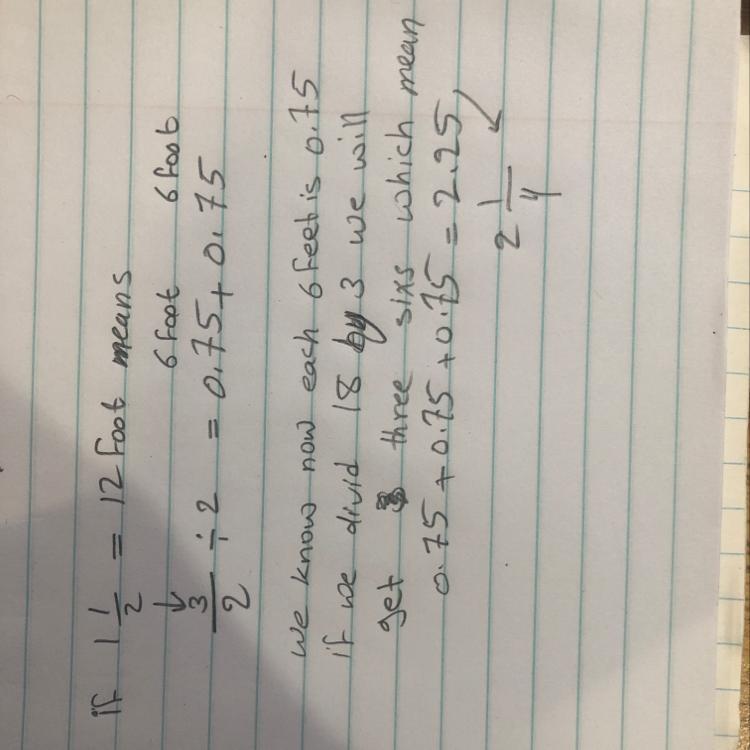 if 1 1/2 = 12 foot means
6 foot 6 foot
3/2 ÷ 2 = 0.75 + 0.75
we know now each 6 feet is 0.75
if we divid 18 by 3 we will
get three sixs which mean
0.75 + 0.75 + 0.75 = 2.25
2 1/4